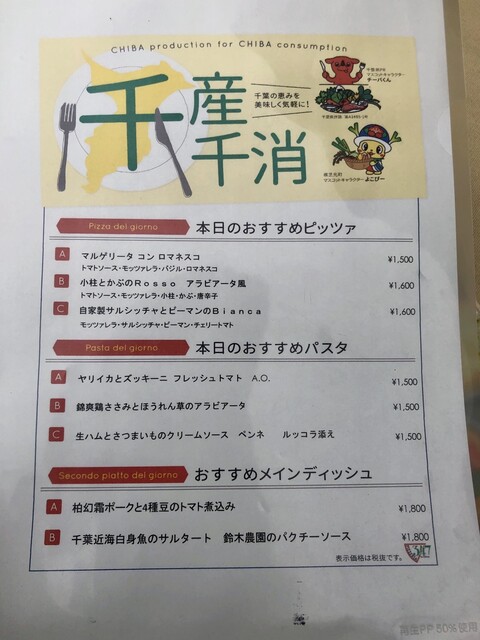 CHIBA production for CHIBA consumption
千産
千消
千葉の恵みを
美味しく気軽に!
千葉県PR
マスコットキャラクター
チーバくん
横芝光町
マスコットキャラクター よこぴー
Pizza del giorno 本日のおすすめピッツァ
A マルゲリータ コン ロマネスコ ¥1,500
トマトソース・モッツァレラ・バジル・ロマネスコ
B 小柱とかぶのRosso アラビアータ風 ¥1,600
トマトソース・モッツァレラ・小柱・かぶ・唐辛子
C 自家製サルシッチャとピーマンのBianca ¥1,600
モッツァレラ・サルシッチャ・ピーマン・チェリートマト
Pasta del giorno 本日のおすすめパスタ
A ヤリイカとズッキーニ フレッシュトマト A.O. ¥1,500
B 錦爽鶏ささみとほうれん草のアラビアータ ¥1,500
C 生ハムとさつまいものクリームソース ペンネ ルッコラ添え ¥1,500
Secondo piatto del giorno おすすめメインディッシュ
A 柏幻霜ポークと4種豆のトマト煮込み ¥1,800
B 千葉近海白身魚のサルタート 鈴木農園のパクチーソース ¥1,800
表示価格は税抜です。
再生PP 50%使用